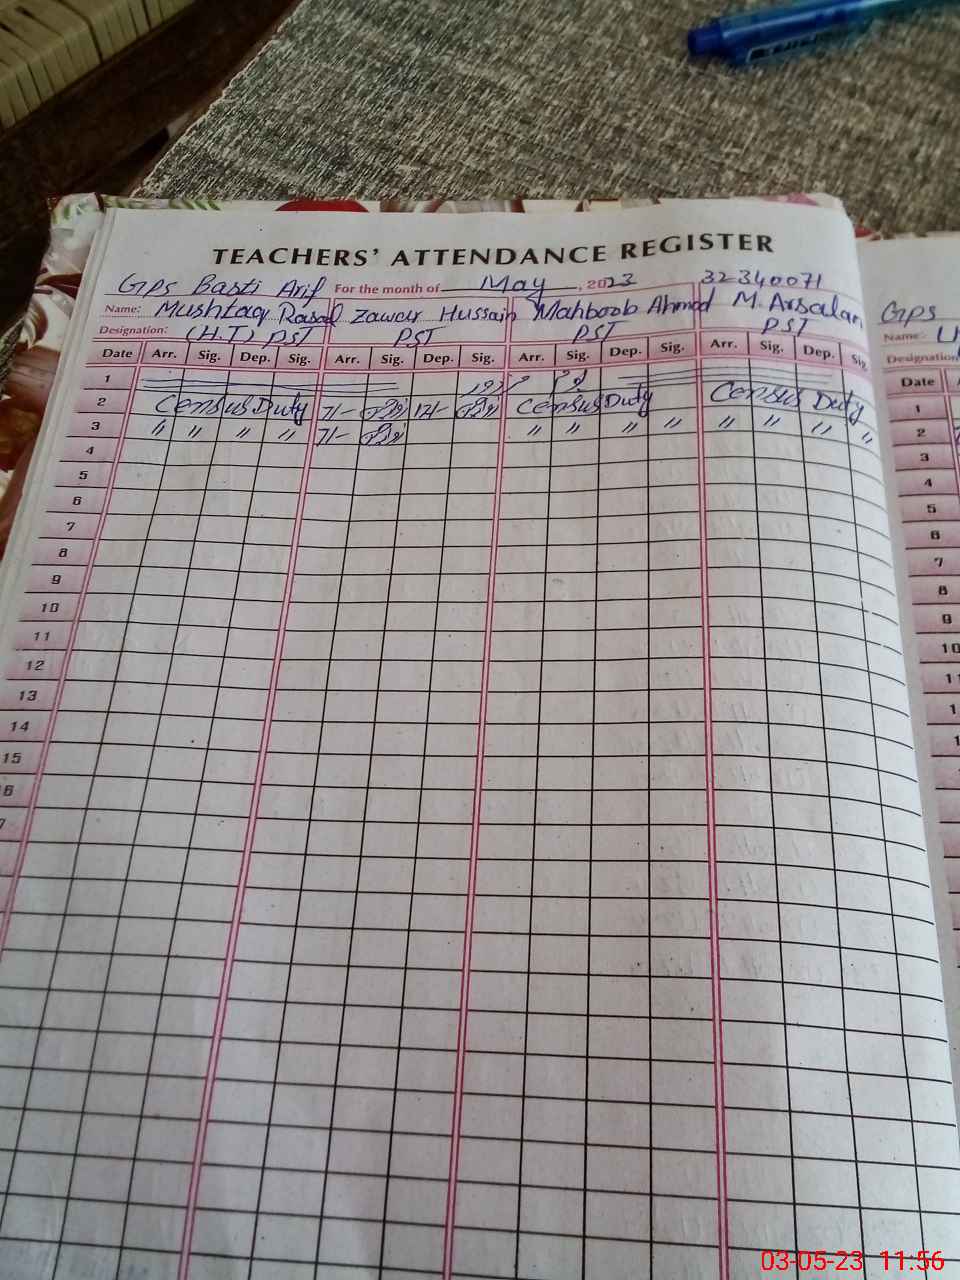 TEACHERS' ATTENDANCE REGISTER
GPS Basti Arif For the month of May, 2023 32340071
Name: Mushtaq Rasool Zawar Hussain Mahboob Ahmed M. Arsalan
Designation: (H.T) PST PST PST PST
Date Arr. Sig. Dep. Sig. Arr. Sig. Dep. Sig. Arr. Sig. Dep. Sig. Arr. Sig. Dep. Sig.
1
2 Census Duty 7/- 12/- Census Duty Census Duty
3 " " " " 7/- " " " " " " " "
4
5
6
7
8
9
10
11
12
13
14
15
6
7
GPS
Name: U
Designation
Date
1
2
3
4
5
6
7
8
9
10
11
1
1
03-05-23 11:56